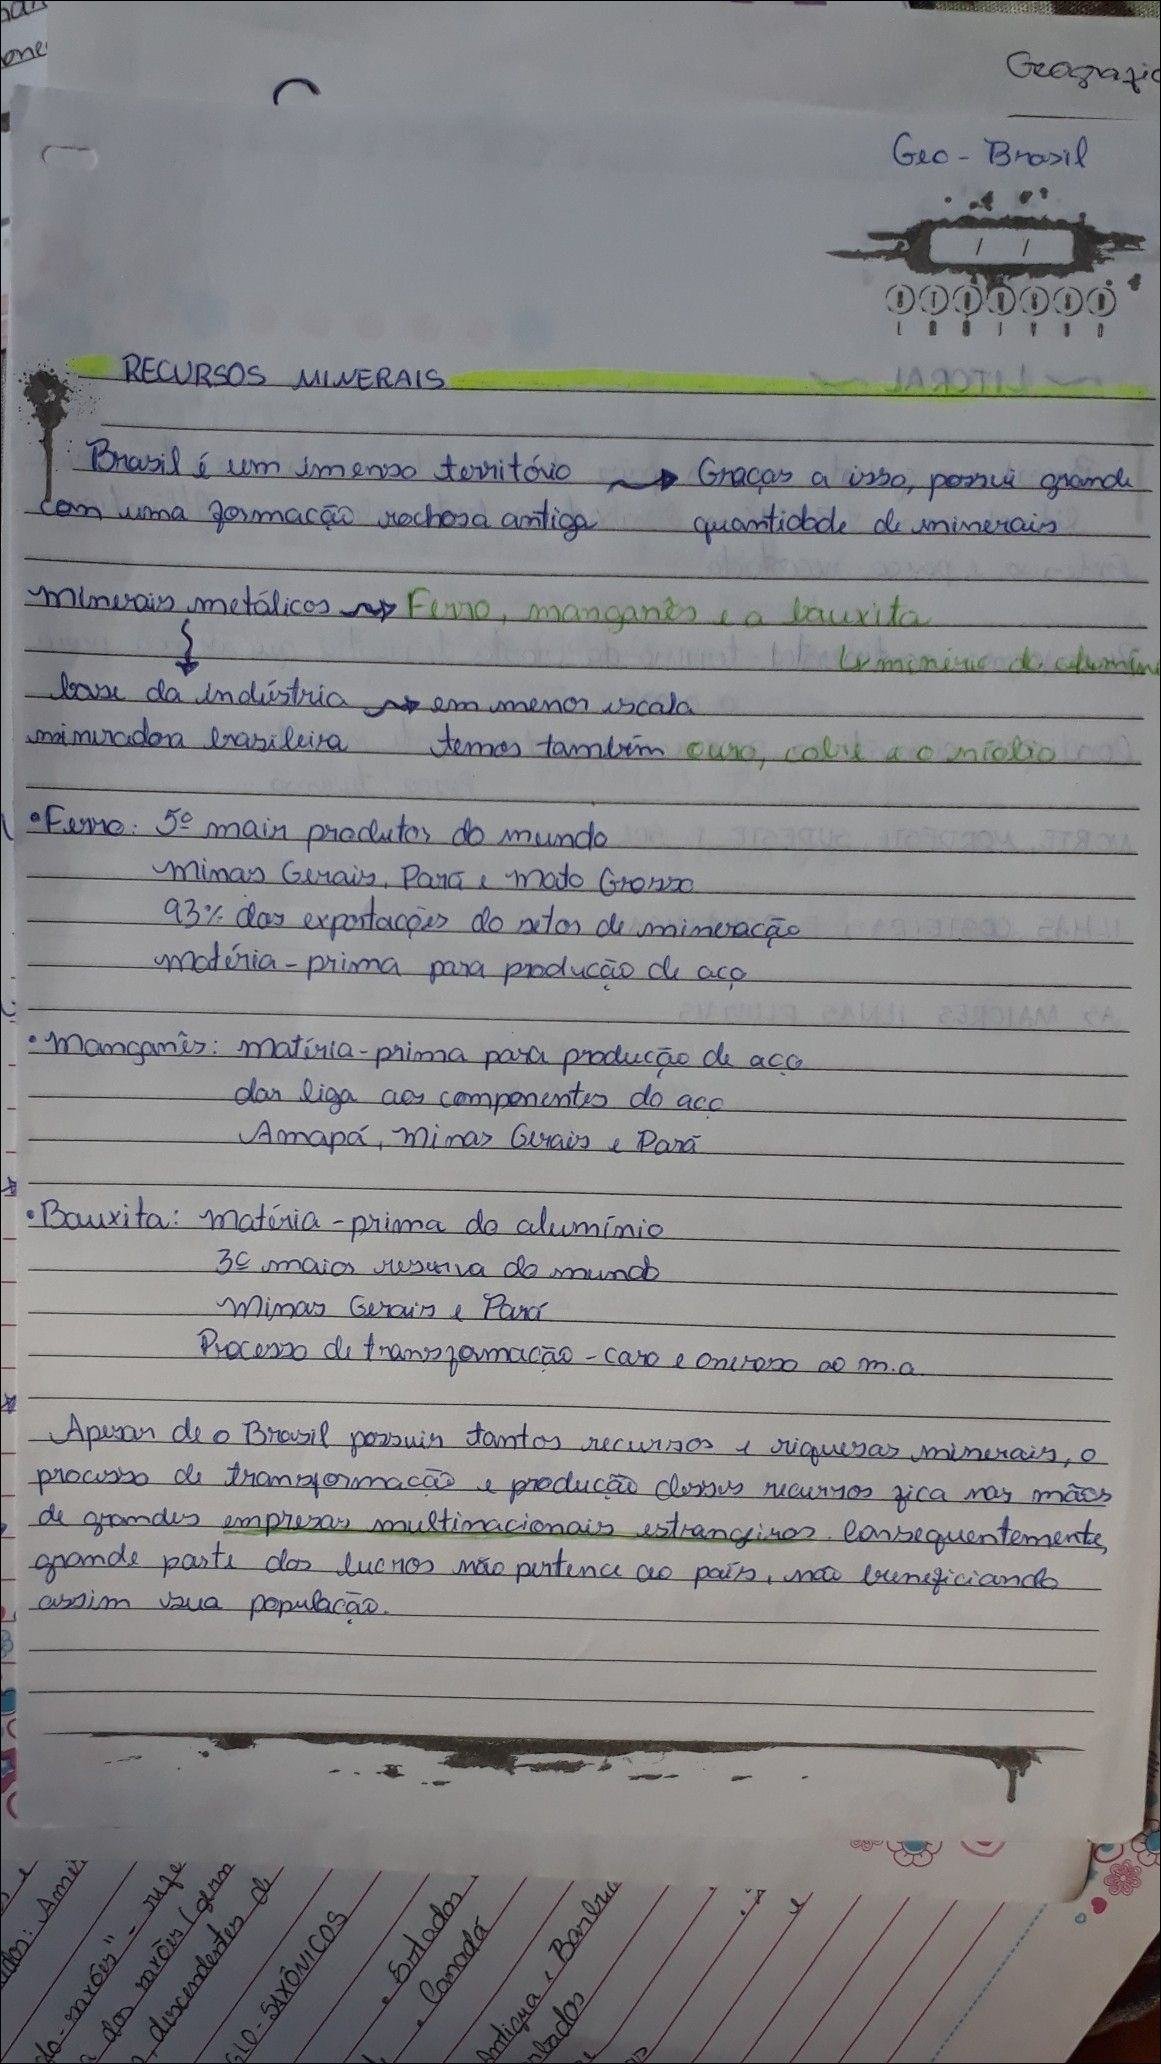 Geografia
Geo - Brasil
/ /
RECURSOS MINERAIS
Brasil é um imenso território → Graças a isso, possui grande
com uma formação rochosa antiga quantidade de minerais
Minerais metálicos → Ferro, manganês e a bauxita
↳ minério do alumínio
base da indústria → em menor escala
mineradora brasileira temos também ouro, cobre e o nióbio
• Ferro: 5º maior produtor do mundo
Minas Gerais, Pará e Mato Grosso
93% das exportações do setor de mineração
matéria-prima para produção de aço
• Manganês: matéria-prima para produção de aço
dar liga aos componentes do aço
Amapá, Minas Gerais e Pará
• Bauxita: matéria-prima do alumínio
3ª maior reserva do mundo
Minas Gerais e Pará
Processo de transformação - caro e oneroso ao m.a.
Apesar de o Brasil possuir tantos recursos e riquezas minerais, o
processo de transformação e produção desses recursos fica nas mãos
de grandes empresas multinacionais estrangeiras. Consequentemente,
grande parte dos lucros não pertence ao país, não beneficiando
assim sua população.
descendentes de
SAXÔNICOS
• Estados
• Canadá
Antigua e Barbuda